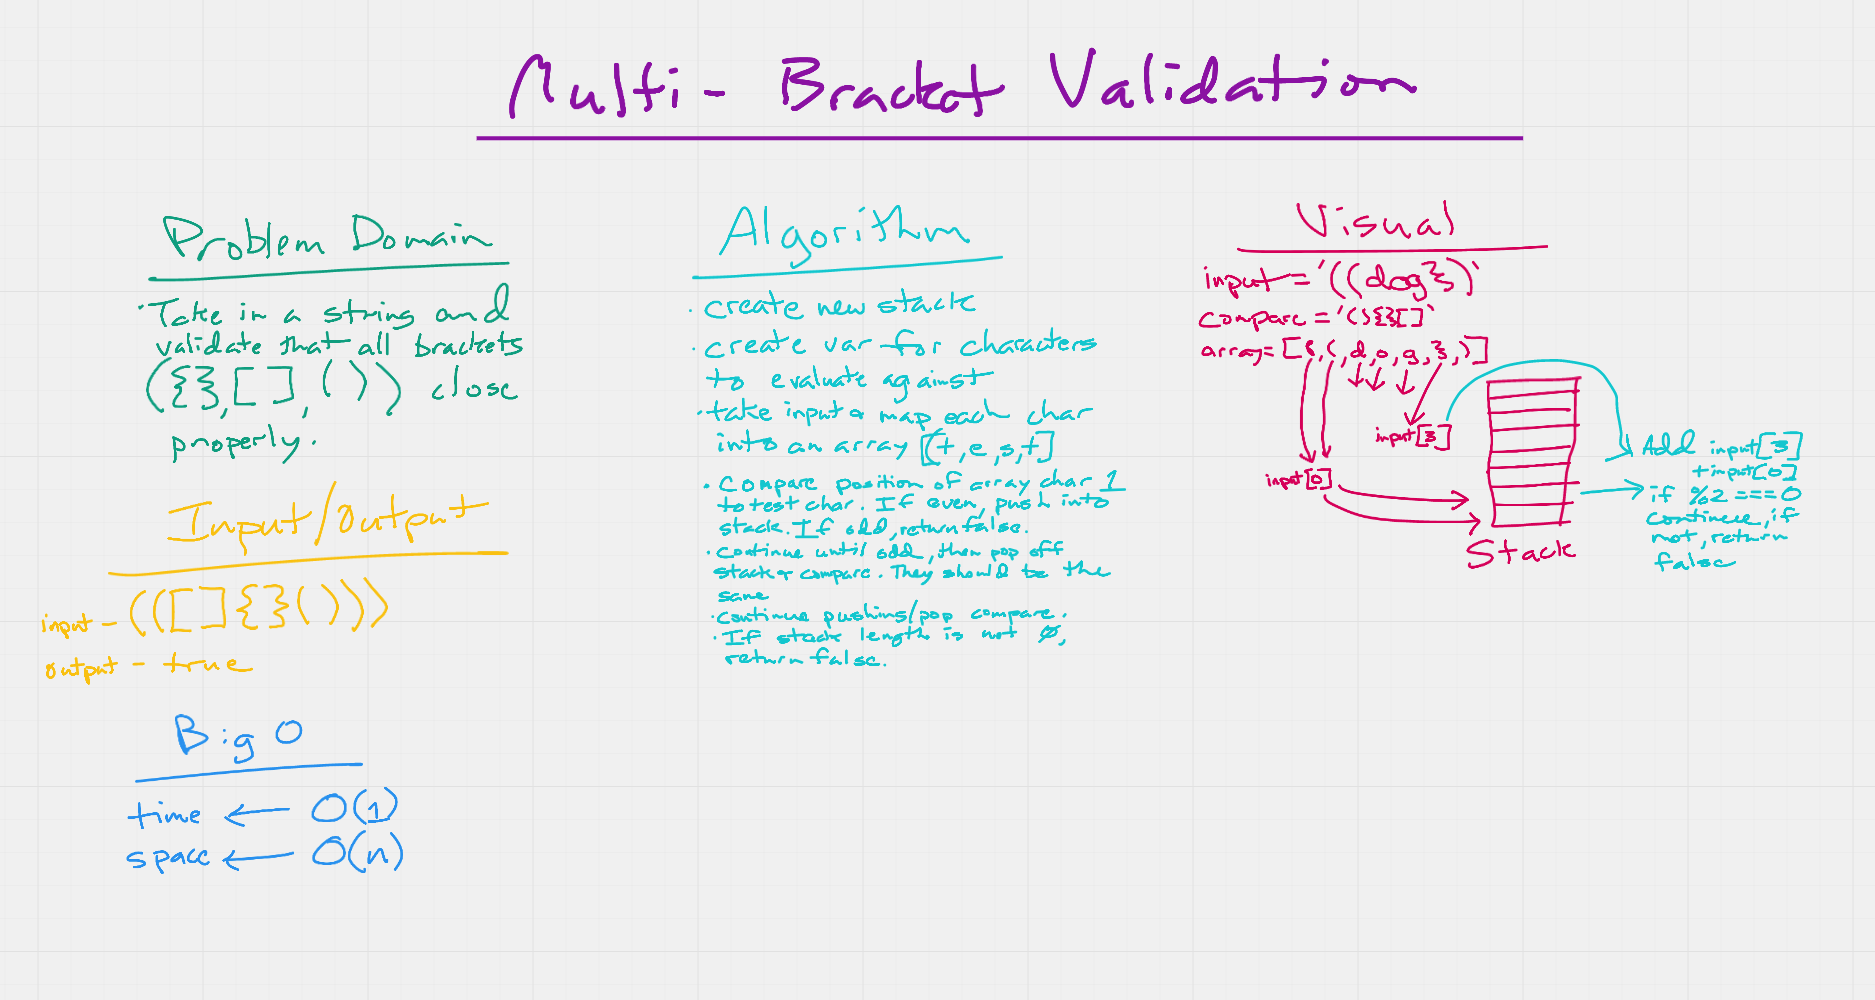 Multi - Bracket Validation
Problem Domain
· Take in a string and
validate that all brackets
({}, [], ()) close
properly.
Input/Output
input - (([]{}()))
output - true
Big O
time ← O(1)
space ← O(n)
Algorithm
· create new stack
· create var for characters
to evaluate against
· take input & map each char
into an array [t,e,s,t]
· Compare position of array char 1
to test char. If even, push into
stack. If odd, return false.
· Continue until odd, then pop off
stack & compare. They should be the
same
· Continue pushing/pop compare.
· If stack length is not 0,
return false.
Visual
input = '((dog})'
compare = '(){}[]'
array = [(,(,d,o,g,},)]
input[3]
input[0]
Stack
Add input[3]
+ input[0]
if %2 === 0
continue, if
not, return
false